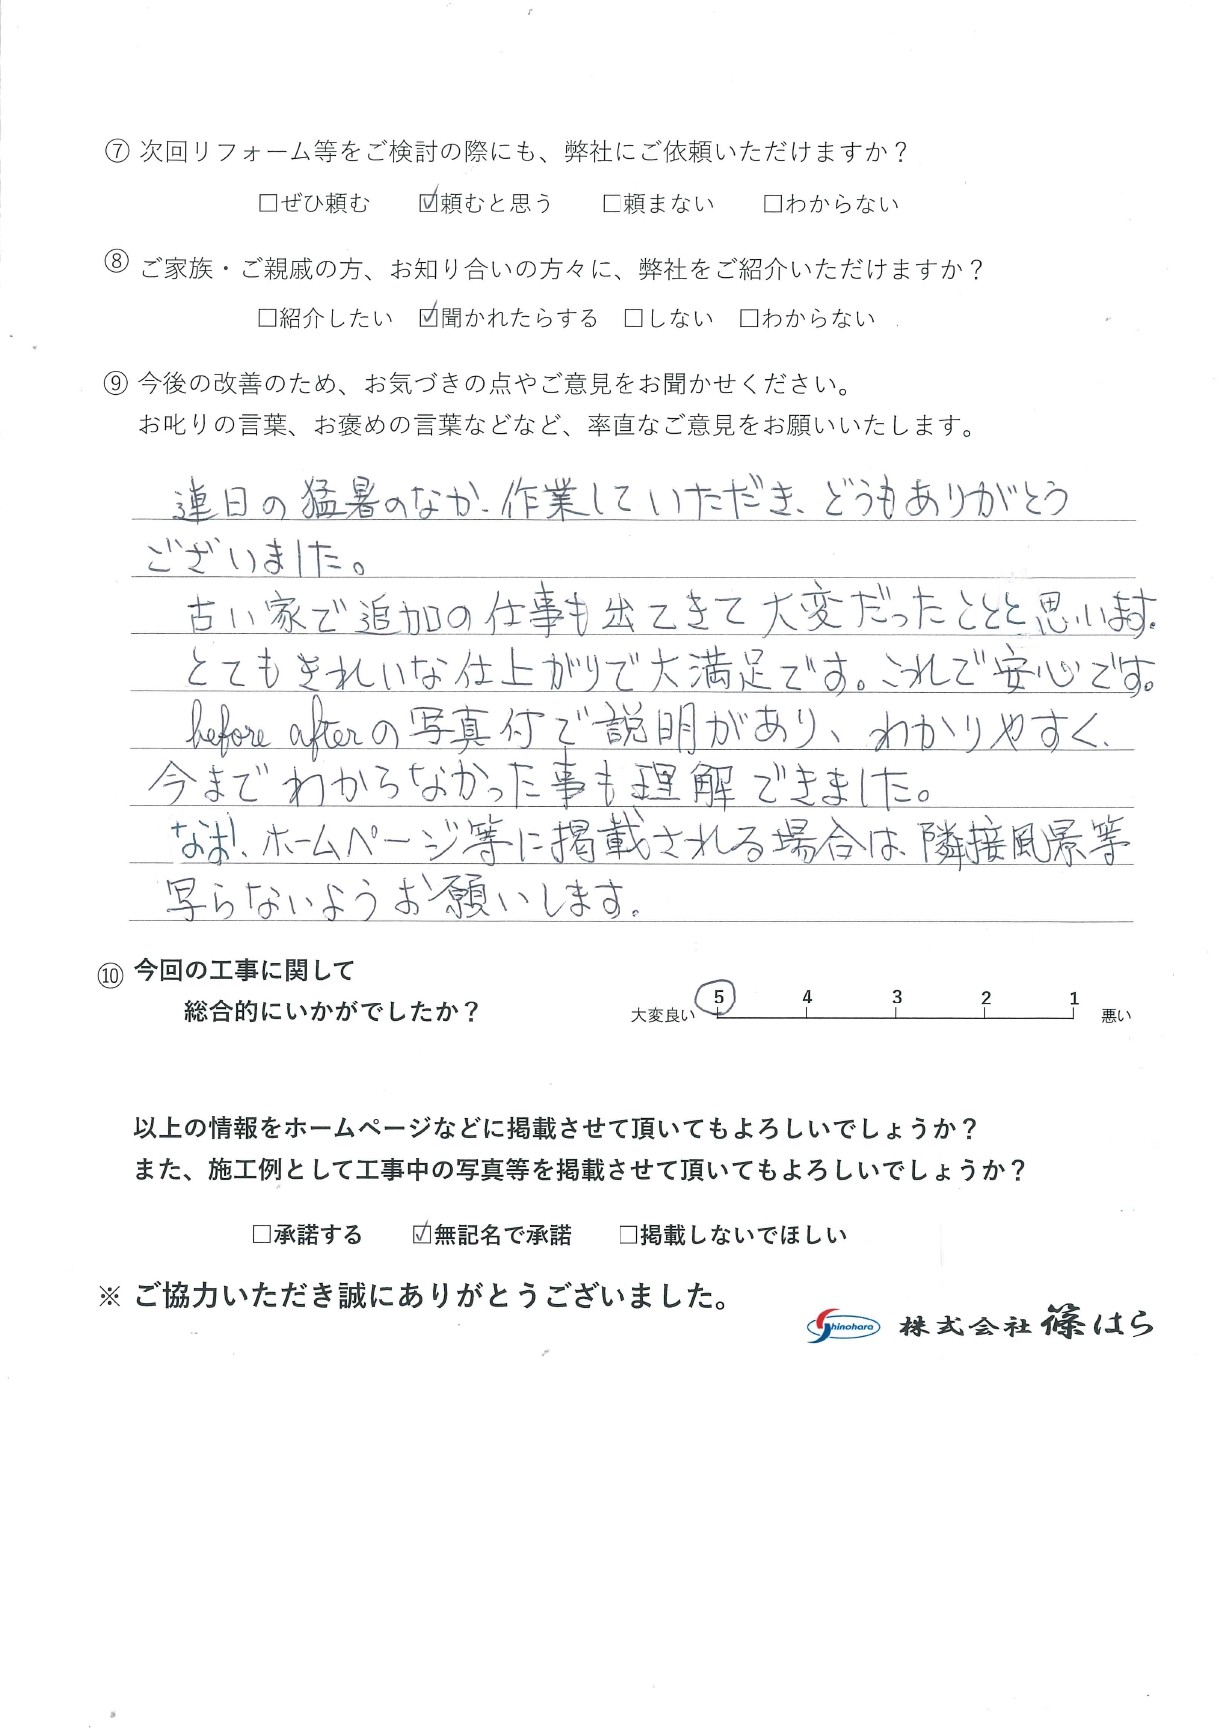 ⑦ 次回リフォーム等をご検討の際にも、弊社にご依頼いただけますか？
□ぜひ頼む ☑頼むと思う □頼まない □わからない
⑧ ご家族・ご親戚の方、お知り合いの方々に、弊社をご紹介いただけますか？
□紹介したい ☑聞かれたらする □しない □わからない
⑨ 今後の改善のため、お気づきの点やご意見をお聞かせください。
お叱りの言葉、お褒めの言葉などなど、率直なご意見をお願いいたします。
連日の猛暑のなか、作業していただき、どうもありがとう
ございました。
古い家で追加の仕事も出てきて大変だったことと思います。
とてもきれいな仕上がりで大満足です。これで安心です。
before afterの写真付で説明があり、わかりやすく、
今までわからなかった事も理解できました。
なお、ホームページ等に掲載される場合は、隣接風景等
写らないようお願いします。
⑩ 今回の工事に関して
総合的にいかがでしたか？
大変良い 5 4 3 2 1 悪い
以上の情報をホームページなどに掲載させて頂いてもよろしいでしょうか？
また、施工例として工事中の写真等を掲載させて頂いてもよろしいでしょうか？
□承諾する ☑無記名で承諾 □掲載しないでほしい
※ ご協力いただき誠にありがとうございました。
Shinohara 株式会社 篠はら